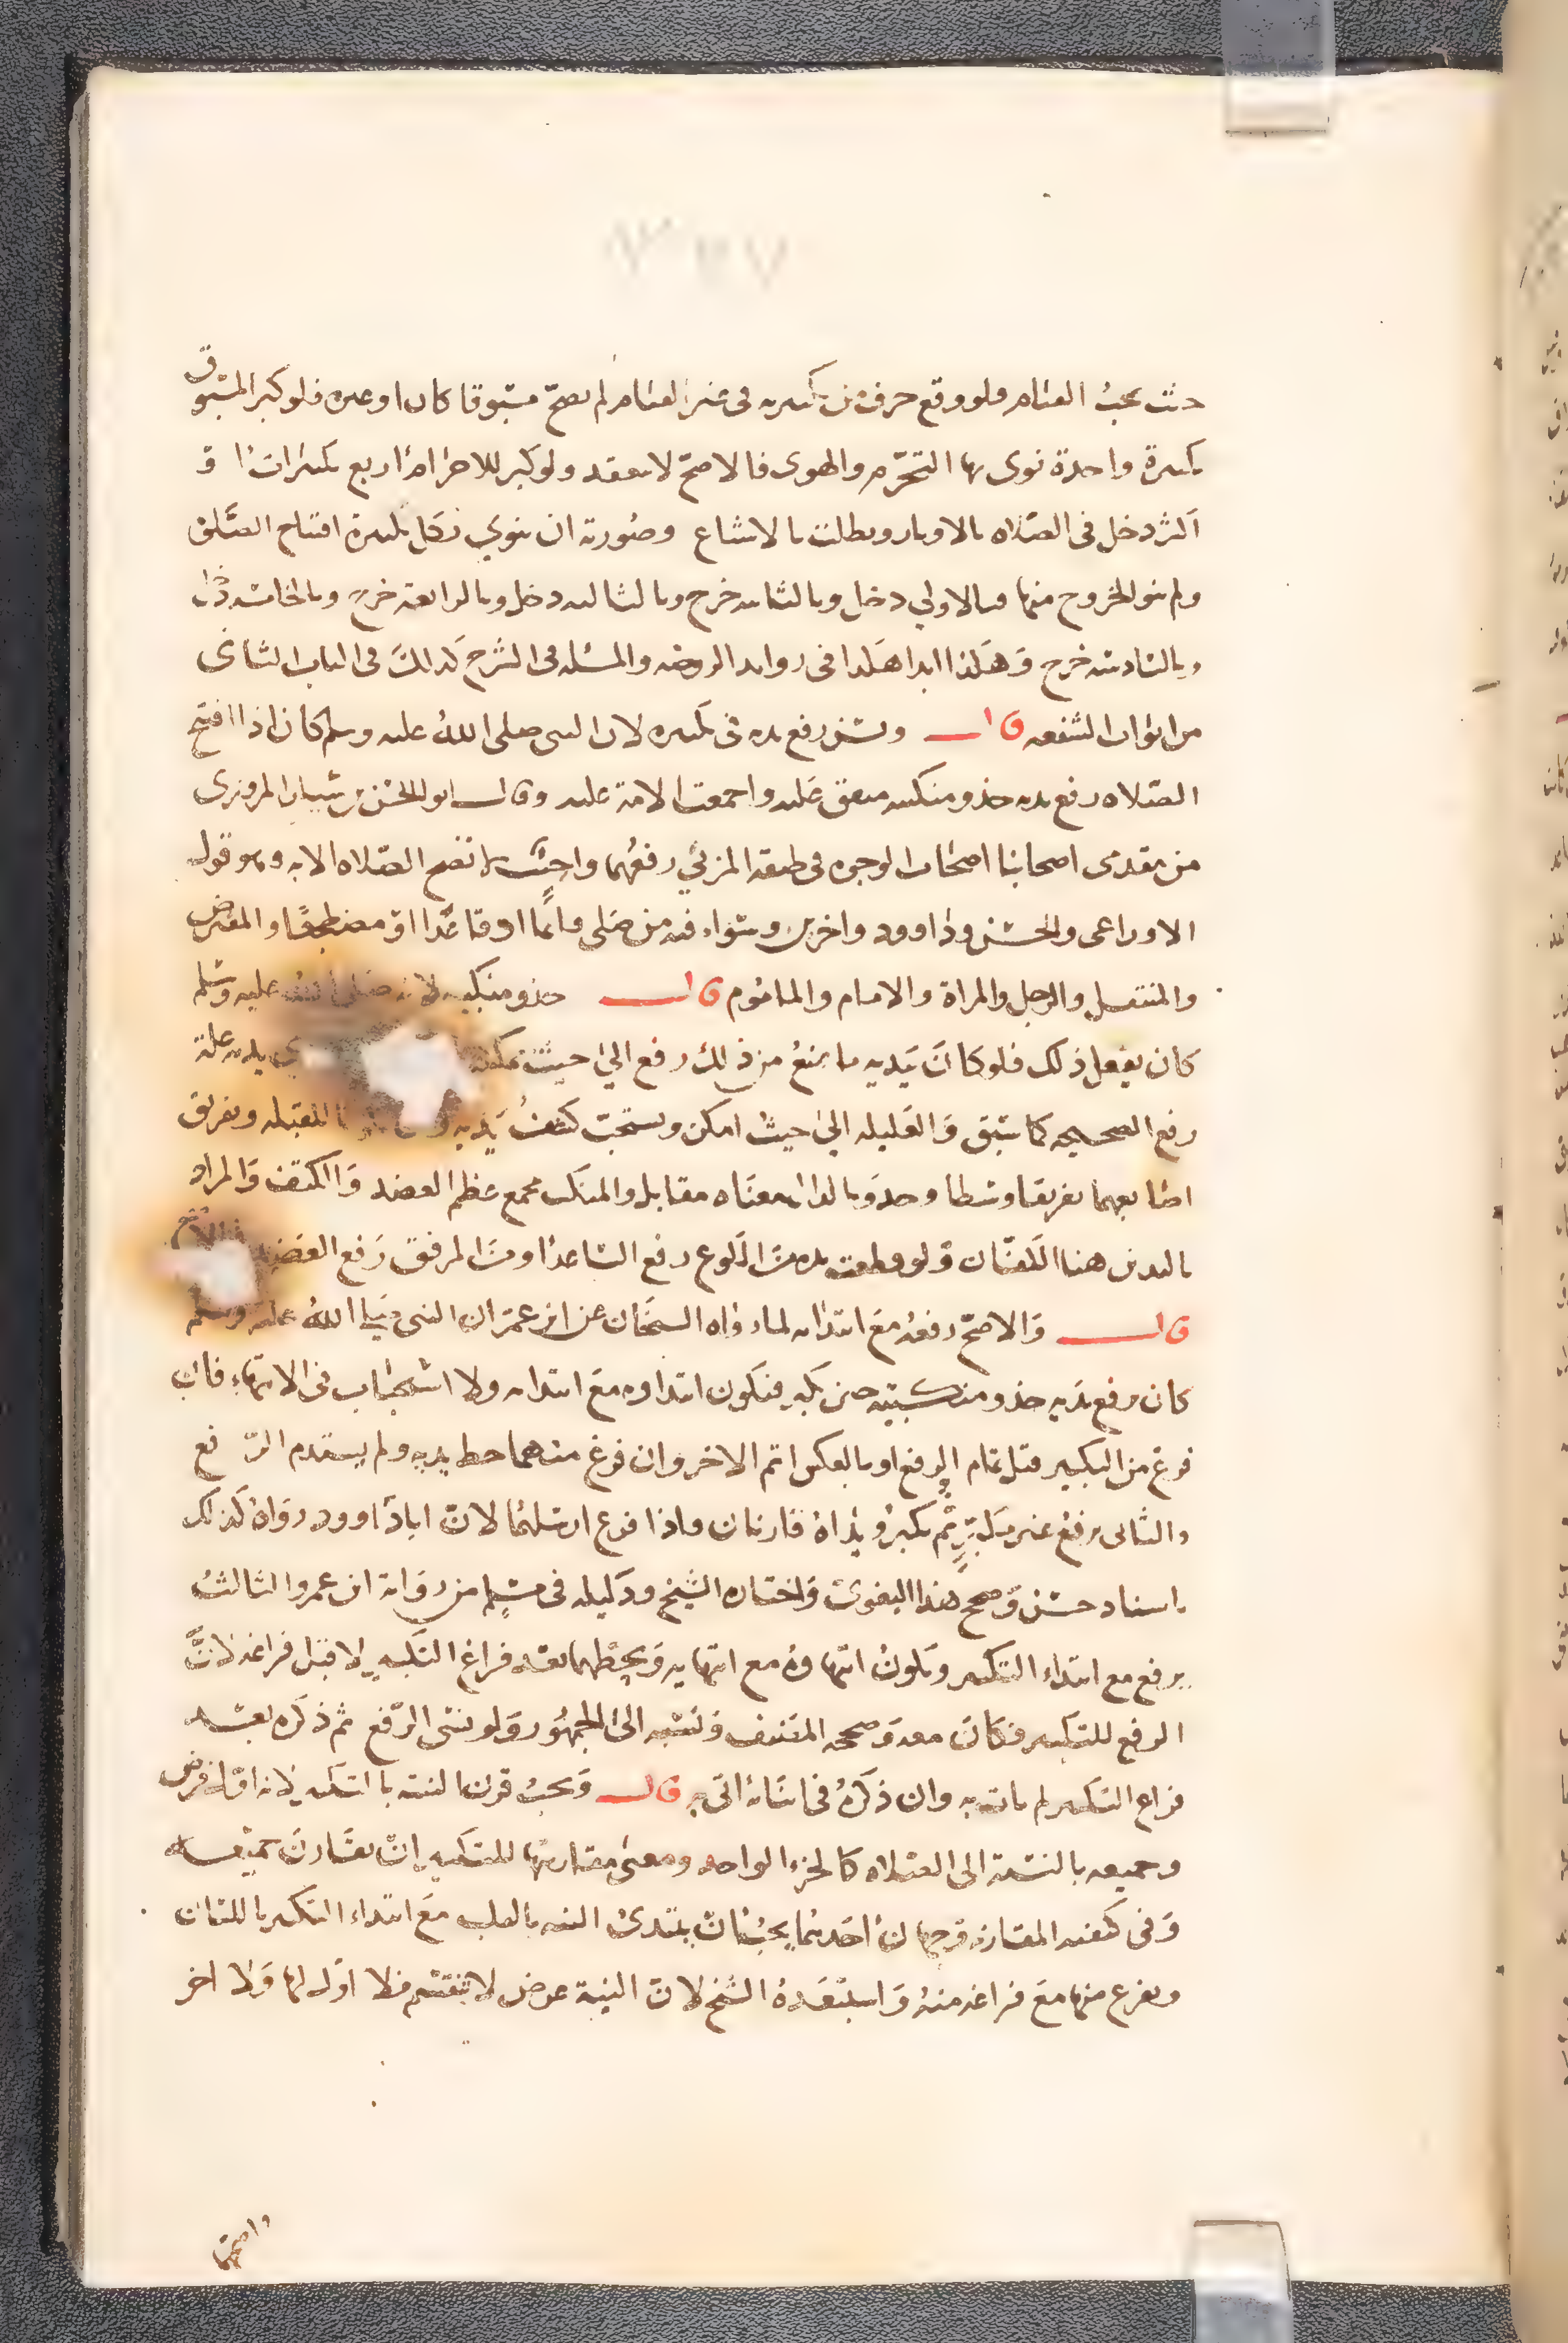 حيث يجب القيام فلو وقع حرف من تكبيره في غير القيام لم يصح مسبوقا كان او غيره فلو كبر المسبوق
تكبيرة واحدة نوى بها التحرم والهوى فالاصح لا تنعقد ولو كبر للاحرام اربع تكبيرات او
اكثر دخل في الصلاه بالاوتار وبطلت بالاشفاع وصورته ان ينوي بكل تكبيرة افتتاح الصلاة
ولم ينو الخروج منها فبالاولي دخل وبالثانيه خرج وبالثالثه دخل وبالرابعة خرج وبالخامسه دخل
وبالسادسه خرج وهكذا ابدا هكذا في زوايد الروضه والمسئله في الشرح كذلك في الباب الثاني
من ابواب الشفعه قال ويسن رفع يديه في تكبيره لان النبي صلى الله عليه وسلم كان اذا افتتح
الصلاه رفع يديه حذو منكبيه متفق عليه واجمعت الامة عليه وقال ابو الحسن بن سيار المروزي
من متقدمي اصحابنا اصحاب الوجوه في طبقة المزني رفعهما واجب لا تصح الصلاه الا به وهو قول
الاوزاعي والحسن وداوود واخرين وسواء فيه من صلى قائما او قاعدا او مضطجعا والمفترض
والمتنفل والرجل والمراة والامام والماموم قال حذو منكبيه لانه صلى الله عليه وسلم
كان يفعل ذلك فلو كان بيديه ما يمنع من ذلك رفع الي حيث يمكنه يديه علة
رفع الصحيحه كما سبق والعليله الي حيث امكن ويستحب كشف يديه للقبله وتفريق
اصابعهما تفريقا وسطا وحذو بالذال معناه مقابل والمنكب مجمع عظم العضد والكتف والمراد
باليدين هنا الكفان ولو قطعت يده من الكوع رفع الساعد او من المرفق رفع العضد في الاصح
قال والاصح رفعه مع ابتدائه لما رواه الشيخان عن ابن عمر ان النبي صلى الله عليه وسلم
كان يرفع يديه حذو منكبيه حين يكبر فيكون ابتداوه مع ابتدائه ولا استحباب في الانتهاء فان
فرغ من التكبير قبل تمام الرفع او بالعكس اتم الاخر وان فرغ منهما حط يديه ولم يستدم الرفع
والثاني يرفع غير مكبر ثم يكبر ويداه قارتان واذا فرغ ارسلهما لان ابا داوود رواه كذلك
باسناد حسن وصحح هذا البغوي واختاره الشيخ ودليله في مسلم من رواية ابن عمر والثالث
يرفع مع ابتداء التكبير ويكون انتهاوه مع انتهايه ويحطهما بعد فراغ التكبير لا قبل فراغه لان
الرفع للتكبير فكان معه وصححه المصنف ونسبه الى الجمهور ولو نسي الرفع ثم ذكره بعد
فراغ التكبير لم يات به وان ذكره في اثنائه اتى به قال ويجب قرن النية بالتكبير لانه اول فرض
وجميعه بالنسبة الى الصلاه كالجزء الواحد ومعنى مقارنتها للتكبير ان تقارن جميعه
وفي كيفية المقارنة وجهان احدهما يجب ان يبتدئ النيه بالقلب مع ابتداء التكبير باللسان
ويفرغ منها مع فراغه منه واستبعده الشيخ لان النية عرض لا ينقسم فلا اول لها ولا اخر
واصحهما